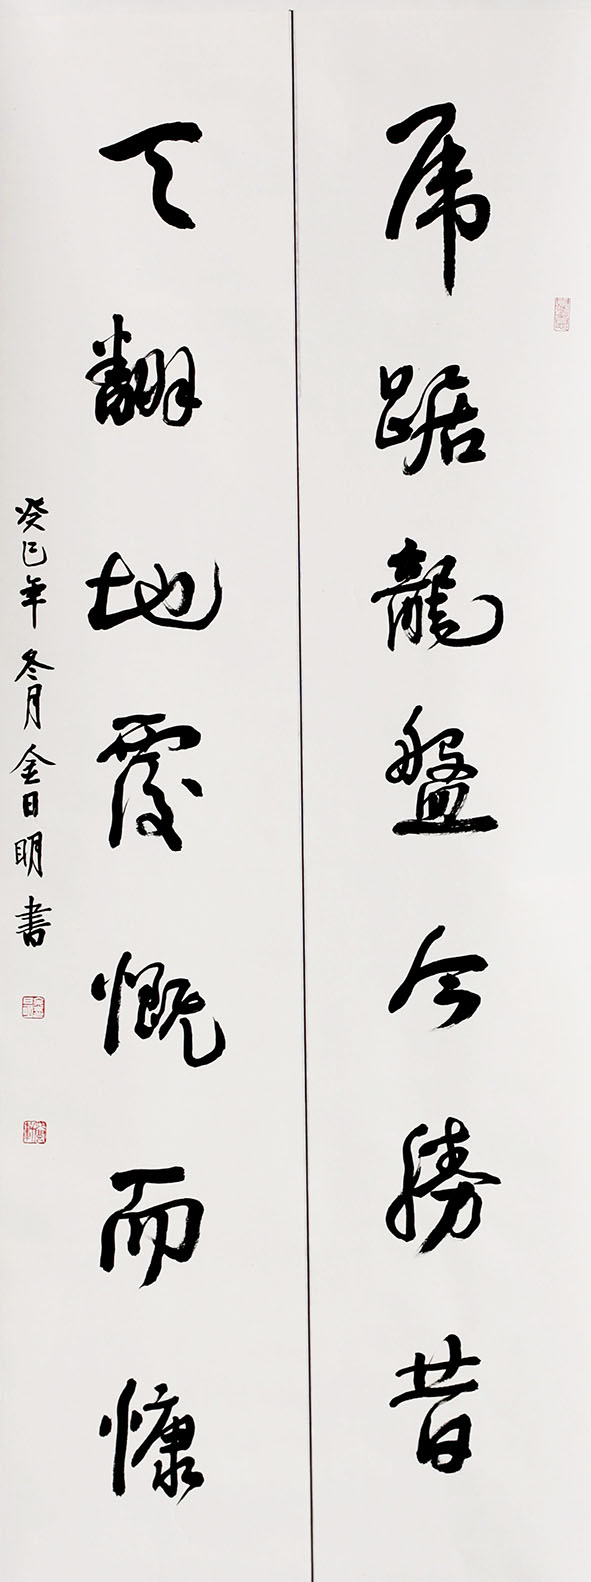 虎踞龍盤今勝昔
天翻地覆慨而慷
癸巳年冬月金日明書